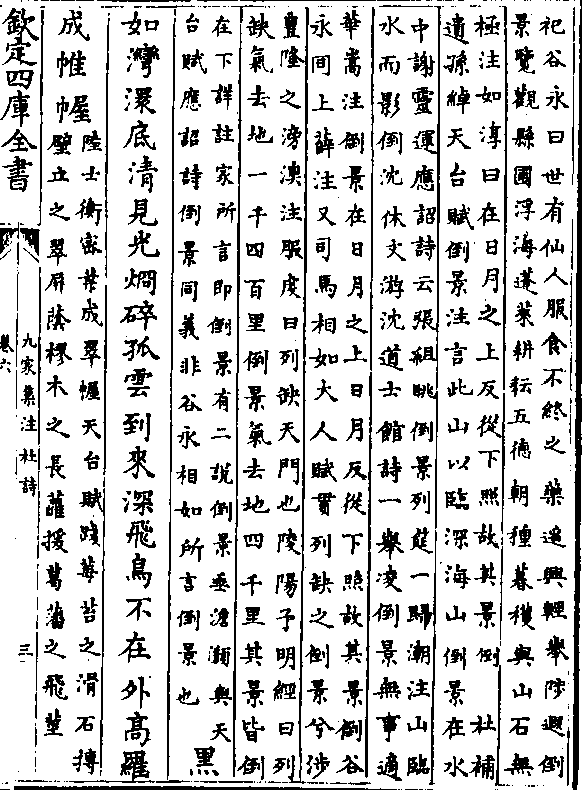 祀谷永曰世有仙人服食不終之藥遥興輕舉陟遐倒
景覽觀縣圃浮海蓬萊耕耘五徳朝種暮穫與山石無
極注如淳曰在日月之上反從下照故其景倒 杜補
遺孫綽天台賦倒景注言此山以臨深海山倒景在水
中謝靈運應詔詩云張組眺倒景列筵一歸潮注山臨
水而影倒沈休文游沈道士館詩一舉凌倒景無事適
華嵩注倒景在日月之上日月反從下照故其景倒谷
永間上薛注又司馬相如大人賦貫列缺之倒景兮涉
豐隆之滂濞注服虔曰列缺天門也陵陽子明經曰列
缺氣去地一千四百里倒景氣去地四千里其景皆倒
在下詳註家所言即倒景有二説倒景垂滄灝與天
台賦應詔詩倒景同義非谷永相如所言倒景也
黑
如灣澴底清見光烱碎孤雲到來深飛鳥不在外高羅
成帷幄
陸士衡密葉成翠幄天台賦踐莓苔之滑石搏
壁立之翠屏蔭樛木之長蘿援葛藟之飛莖
欽定四庫全書
九家集注杜詩
卷六
三